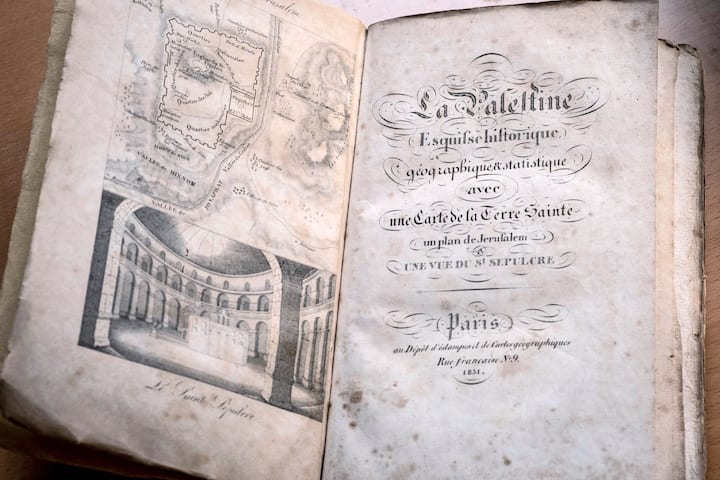 erusalem
Quartier
Quartier
VALLÉE de HINNOM
VALLÉE de
JOSAPHAT
Le Saint Sépulcre.
La Palestine
Esquisse historique
géographique & statistique
avec
une Carte de la Terre Sainte
un plan de Jerusalem
&
UNE VUE DU St. SEPULCRE
Paris
au Dépôt d'éstampes et de Cartes géographiques
Rue française No. 9.
1831.